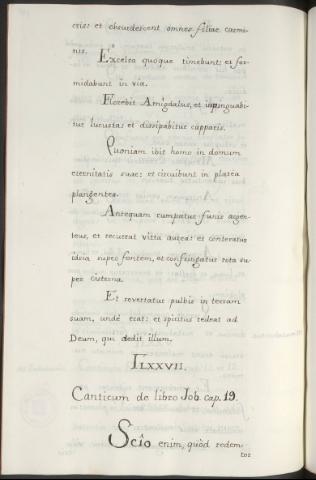 cris: et obsurdescent omnes filiae carmi-
nis.
Excelsa quoque timebunt: et for-
midabunt in via.
Florebit Amigdalus, et inpinguabi-
tur lucusta: et dissipabitur capparis.
Quoniam ibit homo in domum
eternitatis suae: et circuibunt in platea
plangentes.
Antequam rumpatur funis argen-
teus, et recurrat vitta aurea: et conteratur
idria super fontem, et confringatur rota su-
per cisterna.
Et revertatur pulbis in terram
suam, unde erat: et spiritus redeat ad
Deum, qui dedit illum.
TLXXVII.
Canticum de libro Job. cap. 19.
Scio enim, quòd redem-
tor